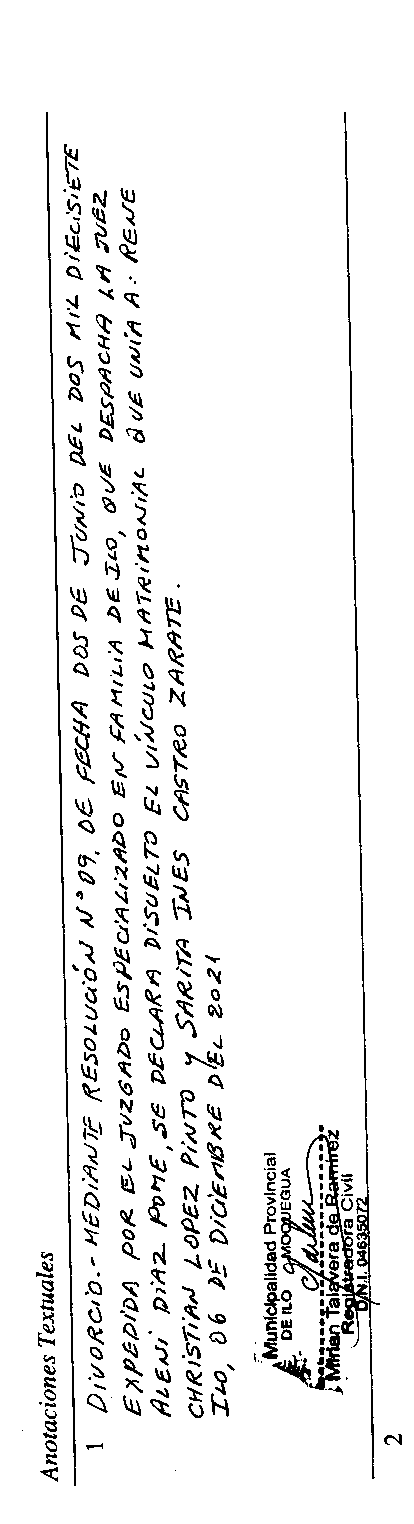 Anotaciones Textuales
1 DIVORCIO.- MEDIANTE RESOLUCIÓN N° 09, DE FECHA DOS DE JUNIO DEL DOS MIL DIECISIETE
EXPEDIDA POR EL JUZGADO ESPECIALIZADO EN FAMILIA DE ILO, QUE DESPACHA LA JUEZ
ALENI DIAZ POME, SE DECLARA DISUELTO EL VÍNCULO MATRIMONIAL QUE UNÍA A: RENE
CHRISTIAN LOPEZ PINTO Y SARITA INES CASTRO ZARATE.
ILO, 06 DE DICIEMBRE DEL 2021
Municipalidad Provincial
DE ILO - MOQUEGUA
Mirian Talavera de Ramirez
Registradora Civil
D.N.I. 04635072
2